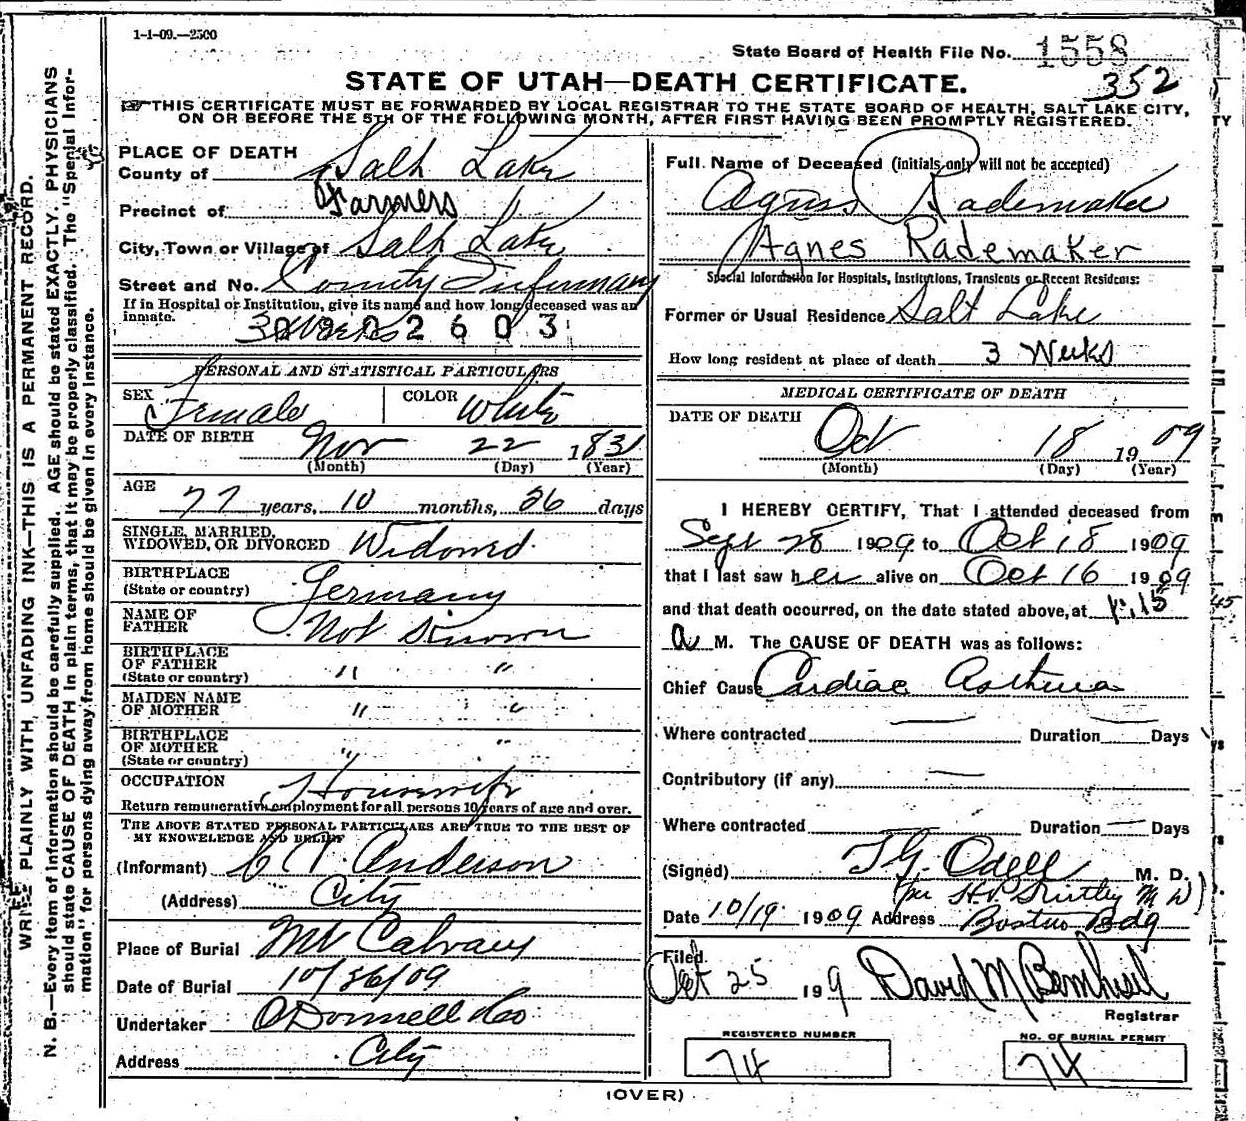 1-1-09.—2500
State Board of Health File No. 1558
352
STATE OF UTAH—DEATH CERTIFICATE.
THIS CERTIFICATE MUST BE FORWARDED BY LOCAL REGISTRAR TO THE STATE BOARD OF HEALTH, SALT LAKE CITY,
ON OR BEFORE THE 5TH OF THE FOLLOWING MONTH, AFTER FIRST HAVING BEEN PROMPTLY REGISTERED.
WRITE PLAINLY WITH UNFADING INK—THIS IS A PERMANENT RECORD.
N. B.—Every item of information should be carefully supplied. AGE should be stated EXACTLY. PHYSICIANS
should state CAUSE OF DEATH in plain terms, that it may be properly classified. The "Special Infor-
mation" for persons dying away from home should be given in every instance.
PLACE OF DEATH
County of Salt Lake
Precinct of Farmers
City, Town or Village of Salt Lake
Street and No. County Infirmary
If in Hospital or Institution, give its name and how long deceased was an
inmate. 3 Weeks 2603
PERSONAL AND STATISTICAL PARTICULARS
SEX Female COLOR White
DATE OF BIRTH Nov 22 1831
(Month) (Day) (Year)
AGE
77 years, 10 months, 26 days
SINGLE, MARRIED,
WIDOWED, OR DIVORCED Widowed.
BIRTHPLACE
(State or country) Germany
NAME OF
FATHER Not Known
BIRTHPLACE
OF FATHER " "
(State or country)
MAIDEN NAME
OF MOTHER " "
BIRTHPLACE
OF MOTHER " "
(State or country)
OCCUPATION Housewife
Return remunerative employment for all persons 10 years of age and over.
THE ABOVE STATED PERSONAL PARTICULARS ARE TRUE TO THE BEST OF
MY KNOWLEDGE AND BELIEF
(Informant) Anderson
(Address) City
Place of Burial Mt Calvary
Date of Burial 10/26/09
Undertaker O'Donnell & Co
Address City
Full Name of Deceased (initials only will not be accepted)
Agnes Rademaker
Agnes Rademaker
Special Information for Hospitals, Institutions, Transients or Recent Residents:
Former or Usual Residence Salt Lake
How long resident at place of death 3 Weeks
MEDICAL CERTIFICATE OF DEATH
DATE OF DEATH
Oct 18 1909
(Month) (Day) (Year)
I HEREBY CERTIFY, That I attended deceased from
Sept 28 1909 to Oct 18 1909
that I last saw her alive on Oct 16 1909
and that death occurred, on the date stated above, at
a M. The CAUSE OF DEATH was as follows:
Chief Cause Cardiac Asthma
Where contracted — Duration — Days
Contributory (if any) —
Where contracted Duration — Days
(Signed) T G. Odell M. D.
Date 10/19 1909 Address Boston Bdg
Filed
Oct 25 199 David M Bernhisel
Registrar
REGISTERED NUMBER
74
NO. OF BURIAL PERMIT
74
(OVER)